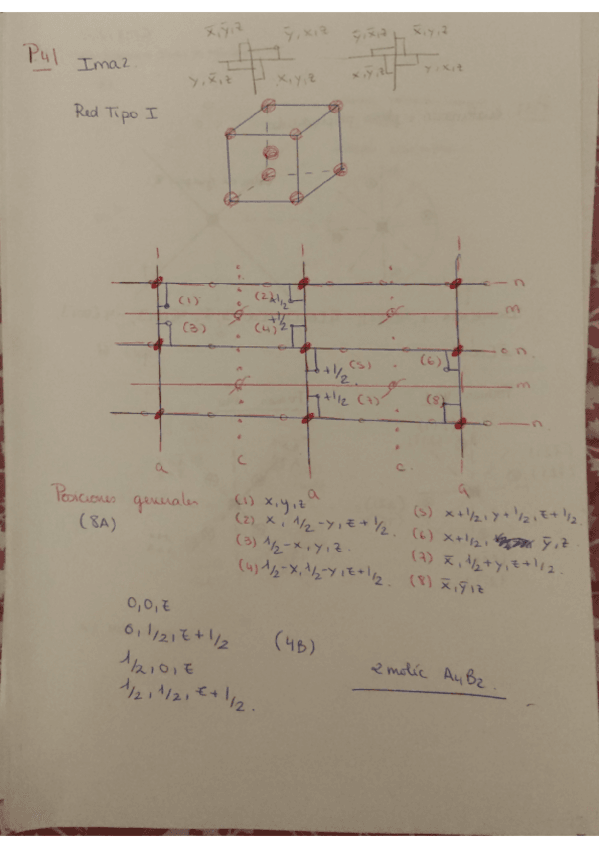 P41
Ima2.
x̄,ȳ,z
ȳ,x,z
y,x̄,z
x,y,z
ȳ,x̄,z
x̄,y,z
x,ȳ,z
y,x,z
Red Tipo I
(1) (2) +1/2 n
m
(3) (4) +1/2
n.
+1/2 (5) (6)
m
+1/2 (7) (8)
n.
a c a c. a
Posiciones generales
(8A)
(1) x,y,z
(2) x, 1/2-y, z+1/2.
(3) 1/2-x, y, z.
(4) 1/2-x, 1/2-y, z+1/2.
(5) x+1/2, y+1/2, z+1/2.
(6) x+1/2, ȳ, z.
(7) x̄, 1/2+y, z+1/2.
(8) x̄, ȳ, z
0,0,z
0, 1/2, z+1/2
1/2, 0, z
1/2, 1/2, z+1/2.
(4B)
2 moléc A4B2.